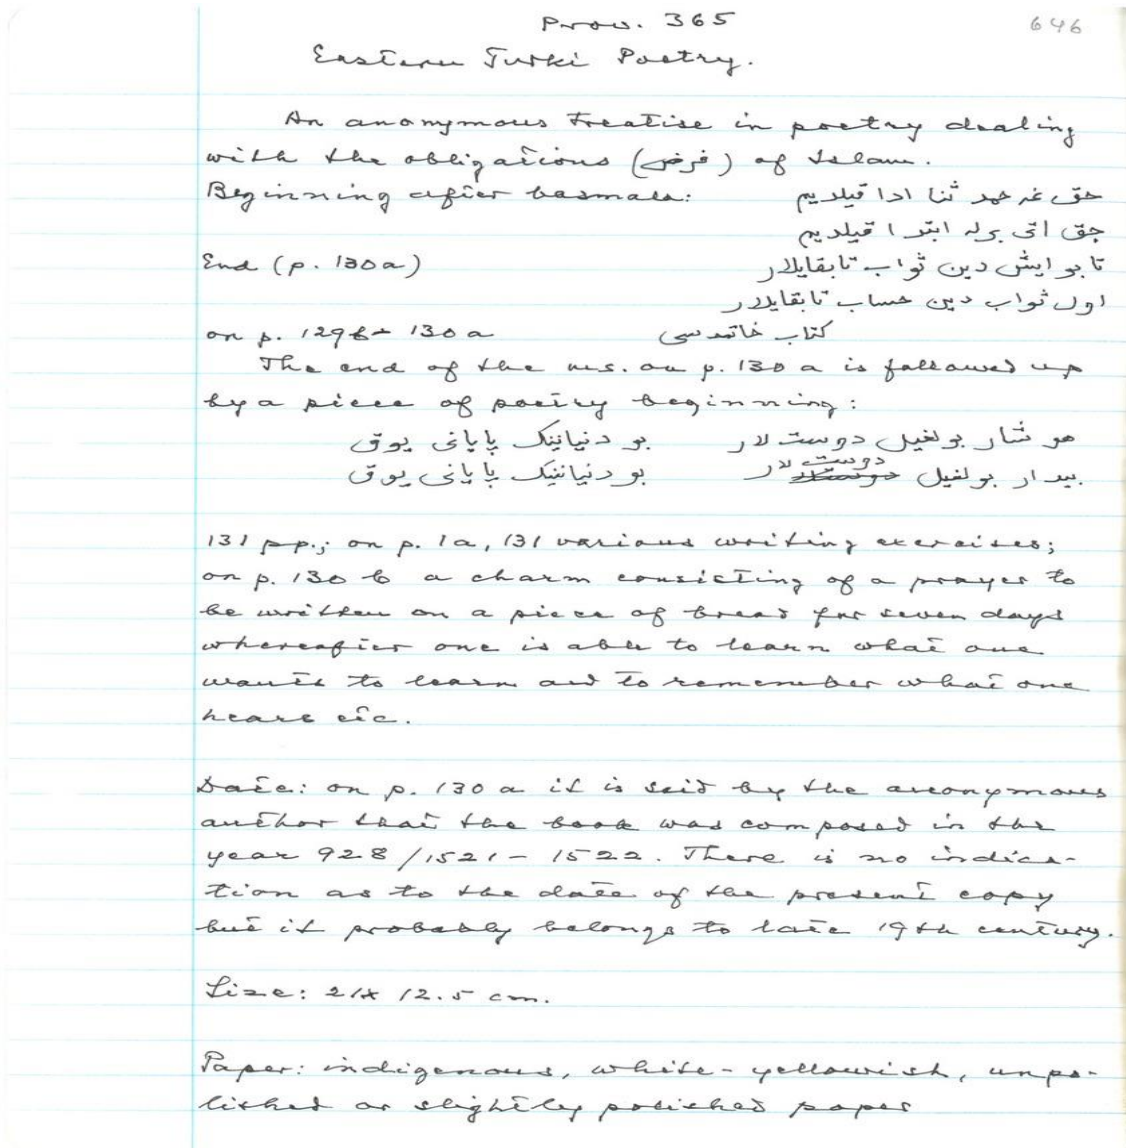 Prov. 365
646
Eastern Turki Poetry.
An anonymous treatise in poetry dealing
with the obligations (فرض) of Islam.
Beginning after basmala: حق غه حمد ثنا ادا قیلدیم
حق اتی برله ابتدا قیلدیم
End (p. 130a) تا بو ایش دین ثواب تابقایلار
اول ثواب دین حساب تابقایلار
on p. 129b - 130a کتاب خاتمه سی
The end of the ms. on p. 130a is followed up
by a piece of poetry beginning:
هوشار بولغیل دوست لار بو دنیانینک پایانی یوق
بیدار بولغیل دوست لار بو دنیانینک پایانی یوق
131 pp.; on p. 1a, 131 various writing exercises;
on p. 130 b a charm consisting of a prayer to
be written on a piece of bread for seven days
whereafter one is able to learn what one
wants to learn and to remember what one
hears etc.
Date: on p. 130a it is said by the anonymous
author that the book was composed in the
year 928/1521-1522. There is no indica-
tion as to the date of the present copy
but it probably belongs to late 19th century.
Size: 21x 12.5 cm.
Paper: indigenous, white-yellowish, unpo-
lished or slightly polished paper